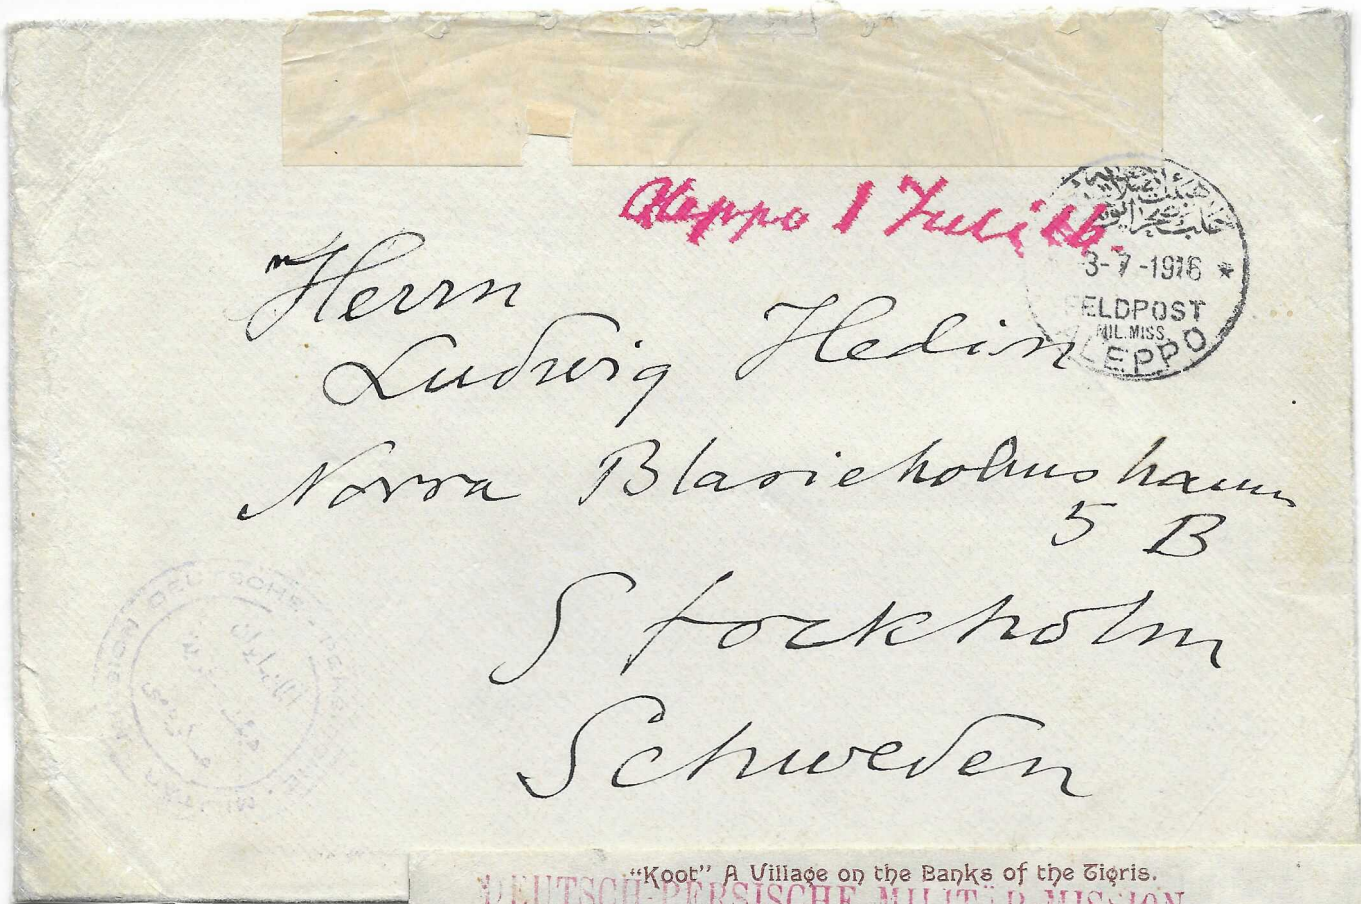 Aleppo 1 Juli 16.
3-7-1916 *
FELDPOST
MIL.MISS.
ALEPPO
Herrn
Ludwig Hedin
Norra Blasieholmshamn
5 B
Stockholm
Schweden
DEUTSCHE PERSISCHE MILITÄR MISSION
"Koot" A Village on the Banks of the Tigris.
DEUTSCH-PERSISCHE MILITÄR MISSION